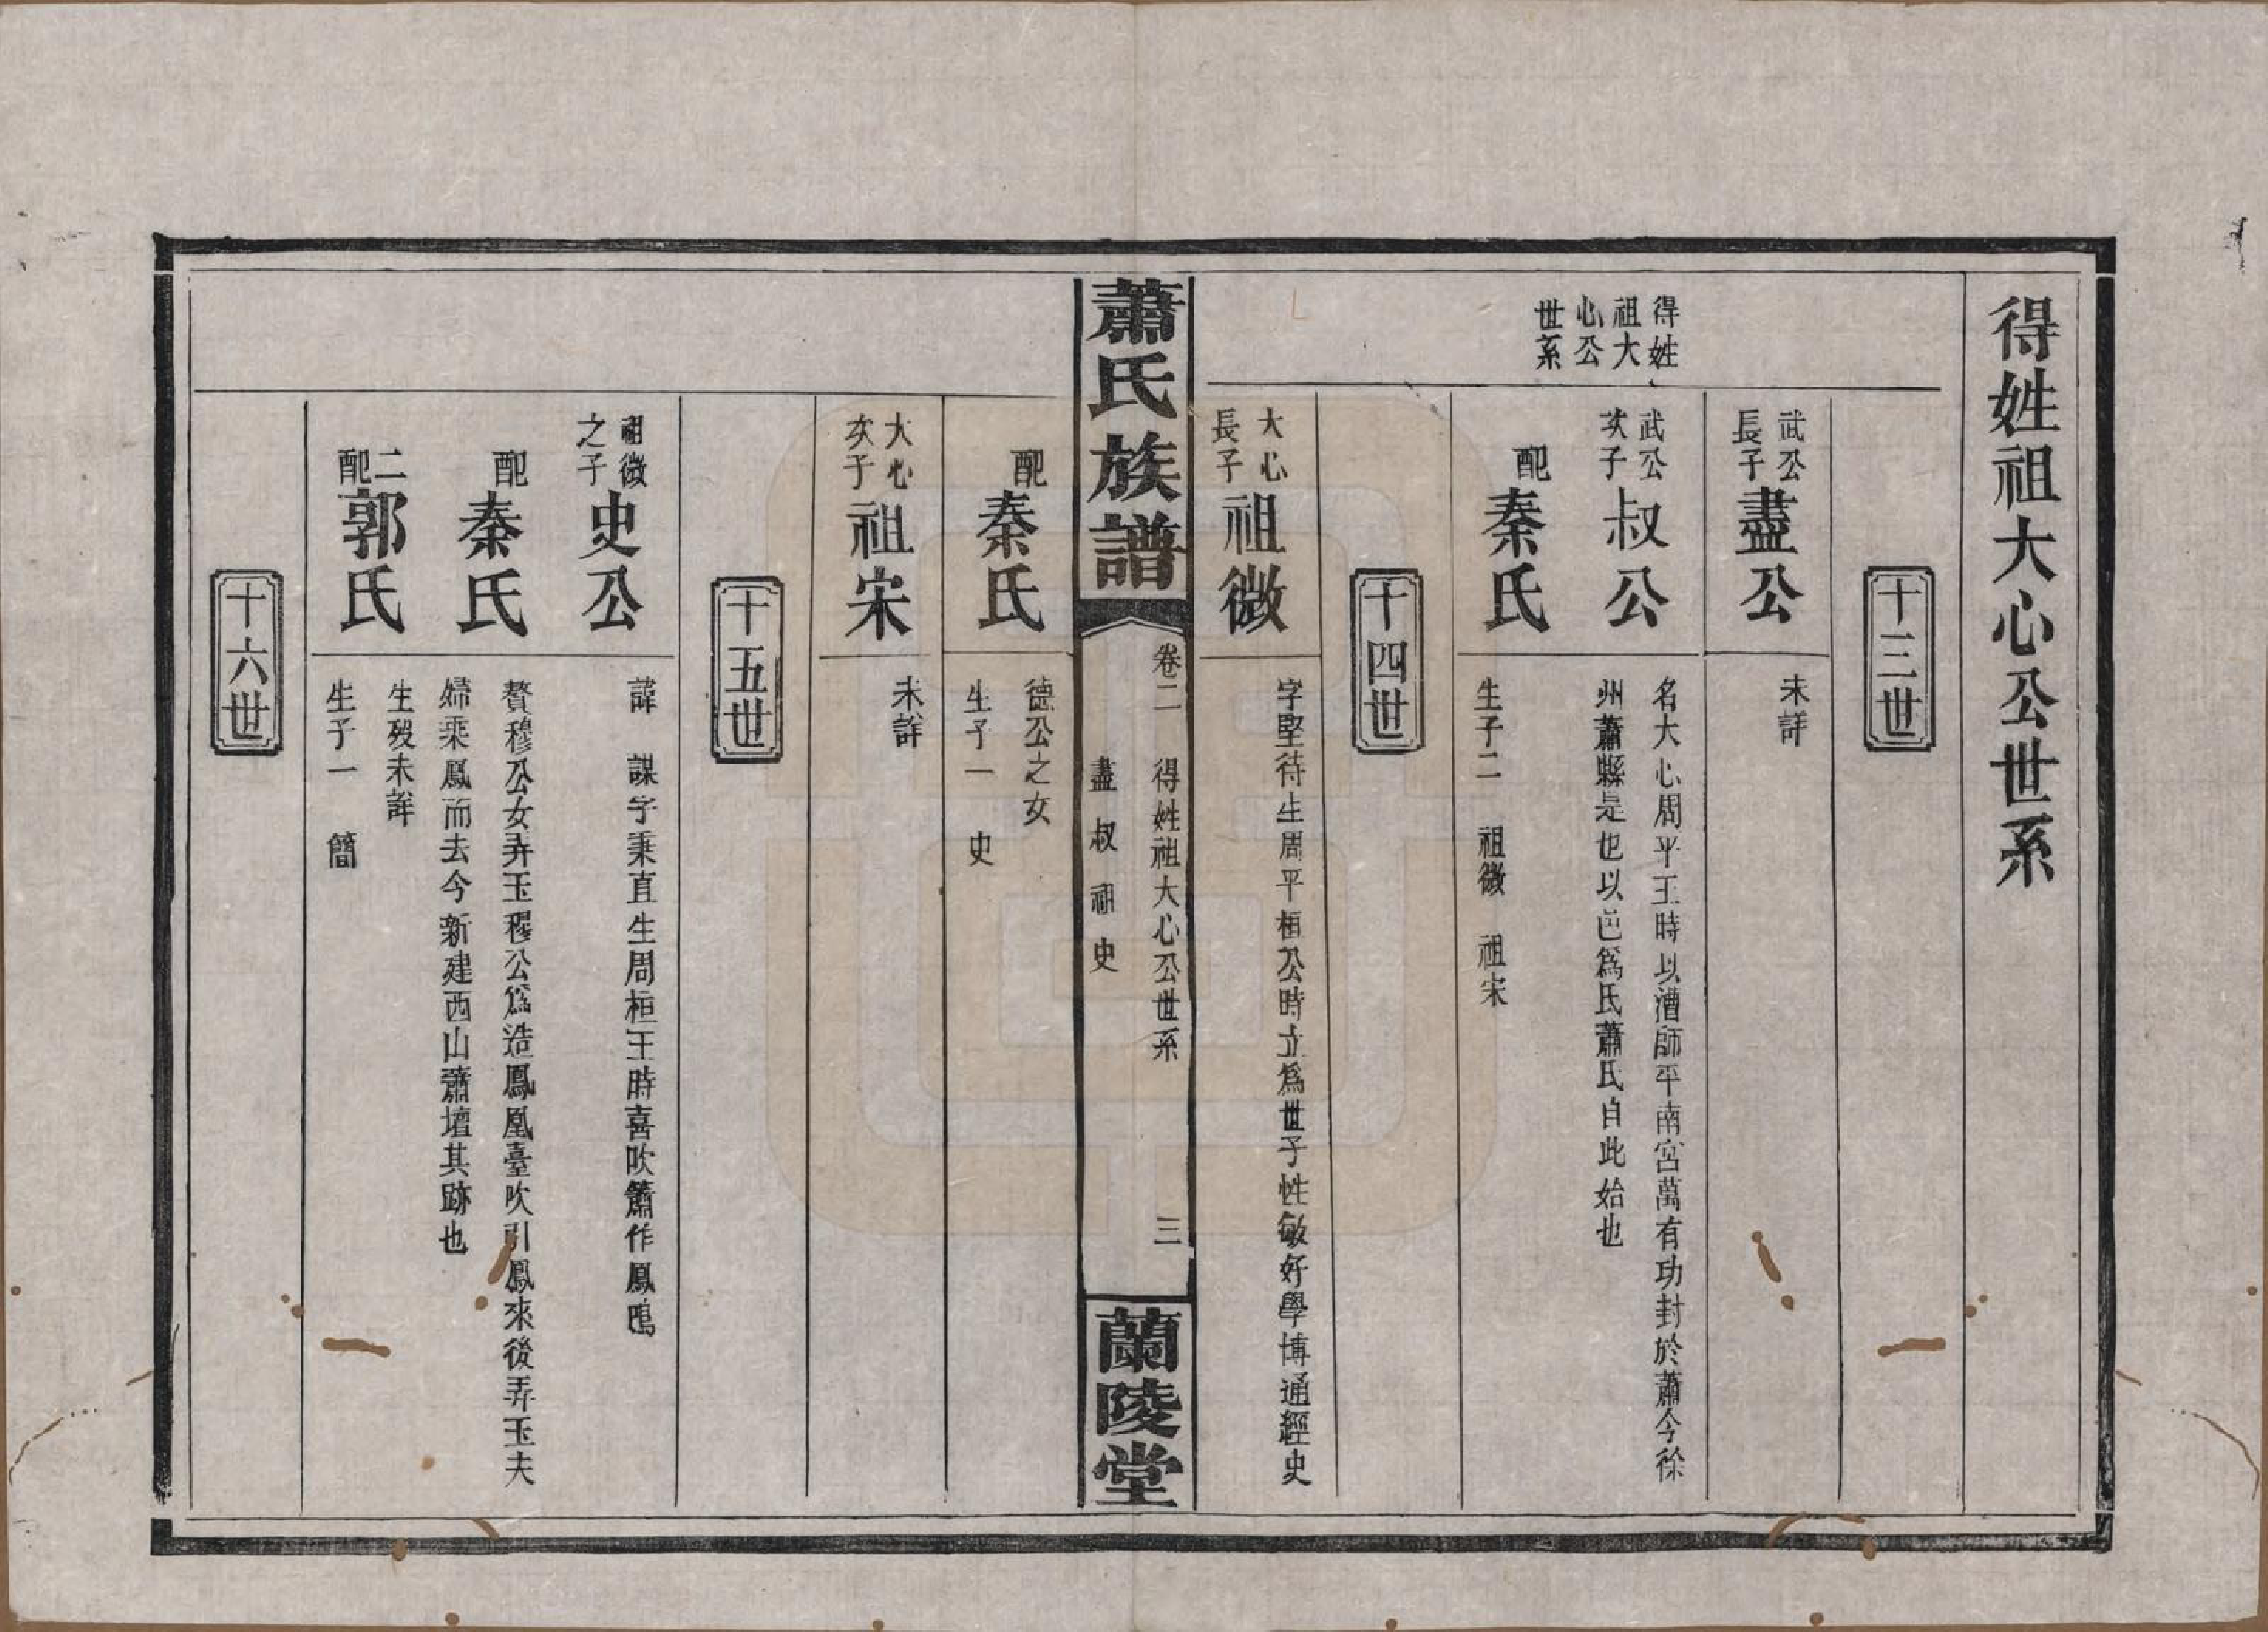 得姓祖大心公世系
得姓
祖大
心公
世系
十三世
武公
長子
盡公
未詳
武公
次子
叔公
名大心周平王時以漕師平南宮萬有功封於蕭今徐
州蕭縣是也以邑爲氏蕭氏自此始也
配
秦氏
生子二 祖微 祖宋
十四世
大心
長子
祖微
字堅待生周平桓公時立爲世子性敏好學博通經史
蕭氏族譜
卷二 得姓祖大心公世系 三
盡 叔 祖 史
蘭陵堂
配
秦氏
德公之女
生子一 史
大心
次子
祖宋
未詳
十五世
祖微
之子
史公
諱 謀字秉直生周桓王時喜吹簫作鳳鳴
配
秦氏
贅穆公女弄玉穆公爲造鳳凰臺吹引鳳來後弄玉夫
婦乘鳳而去今新建西山簫壇其跡也
二
配
郭氏
生殁未詳
生子一 簡
十六世